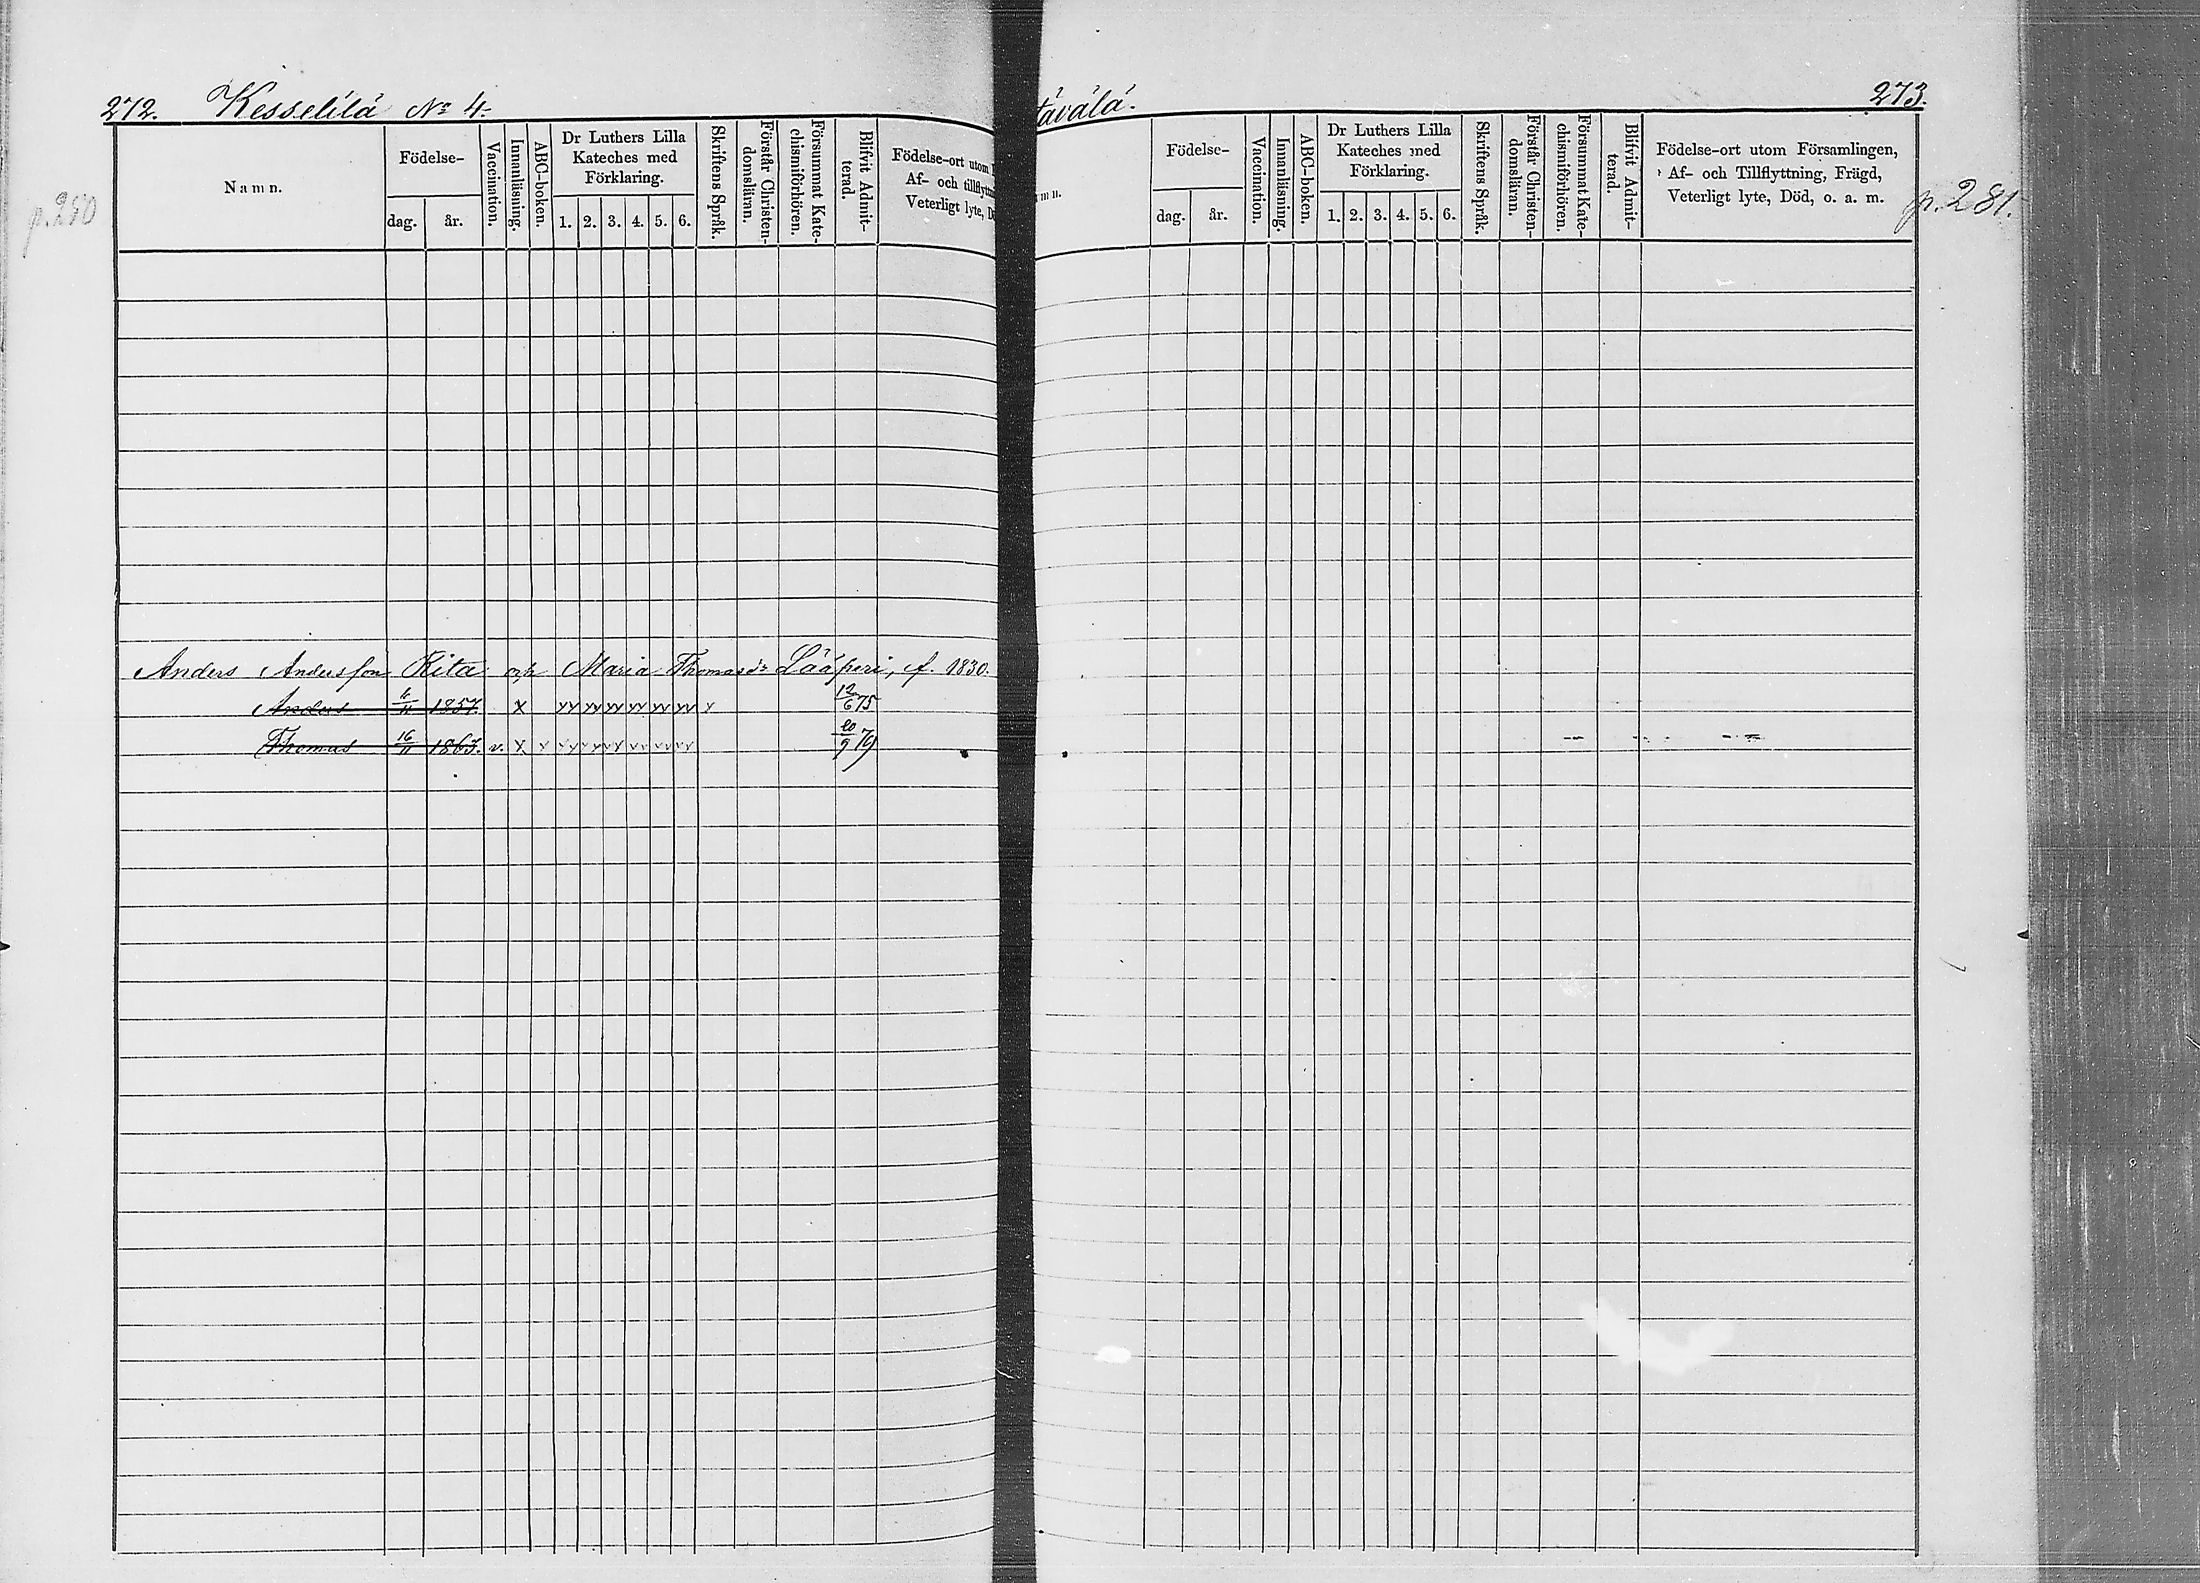 272. Kesselilä No 4.
p. 280
Namn.
Födelse-
dag. år.
Vaccination.
Innanläsning.
ABC-boken.
Dr Luthers Lilla
Kateches med
Förklaring.
1. 2. 3. 4. 5. 6.
Skriftens Språk.
Förstår Christen-
domsläran.
Försummat Kate-
chismiförhören.
Blifvit Admit-
terad.
Födelse-ort utom
Af- och tillflyttn
Veterligt lyte, Dö
Anders Andersson Rita och Maria Thomasdr Lääperi, f. 1830.
Anders 11 1857. x xx xx xx xx xx xx x 12/6 75
Thomas 16/11 1863. v. x x xx xx xx xx xx xx 20/9 79
tävälä.
273.
p. 281.
m n.
Födelse-
dag. år.
Vaccination.
Innanläsning.
ABC-boken.
Dr Luthers Lilla
Kateches med
Förklaring.
1. 2. 3. 4. 5. 6.
Skriftens Språk.
Förstår Christen-
domsläran.
Försummat Kate-
chismiförhören.
Blifvit Admit-
terad.
Födelse-ort utom Församlingen,
Af- och Tillflyttning, Frägd,
Veterligt lyte, Död, o. a. m.